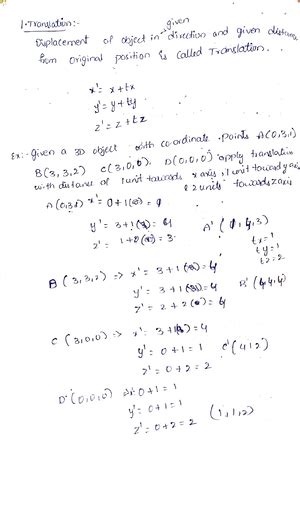 1. Translation:-
given
Displacement of object in direction and given distance
from original position is called Translation.
x' = x+tx
y' = y+ty
z' = z+tz
Ex:- Given a 3D object with co-ordinate points A(0,3,1)
B(3,3,2) C(3,0,0), D(0,0,0) apply translation
with distance of 1 unit towards x axis, 1 unit toward y axis
& 2 units towards z axis
A(0,3,1) x' = 0+1
y' = 3+1
z' = 1+2 = 3
A'(1,4,3)
tx=1
ty=1
tz=2
B(3,3,2) => x' = 3+1 = 4
y' = 3+1 = 4
z' = 2+2 = 4
B'(4,4,4)
C(3,0,0) => x' = 3+1 = 4
y' = 0+1 = 1
z' = 0+2 = 2
C'(4,1,2)
D(0,0,0) 0+1 = 1
y' = 0+1 = 1
z' = 0+2 = 2
(1,1,2)